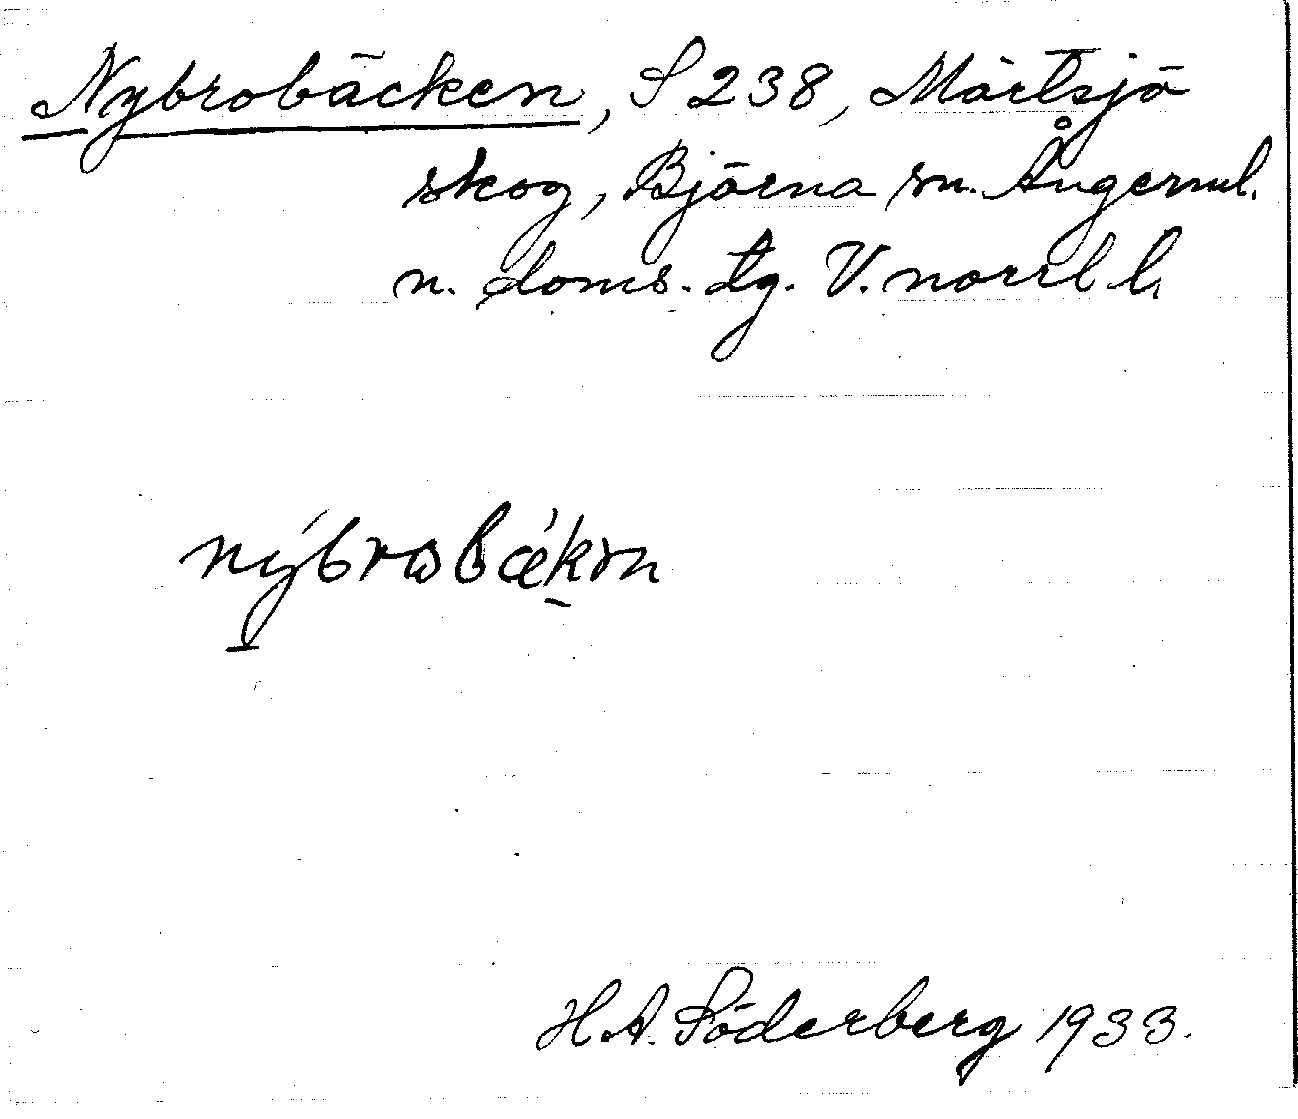 Nybrobäcken, S 238, Mårtsjö
skog, Björna sn. Ångerml.
n. doms. tg. V. norrl l.
nýbrωbǽkɤn
H. A. Söderberg 1933.